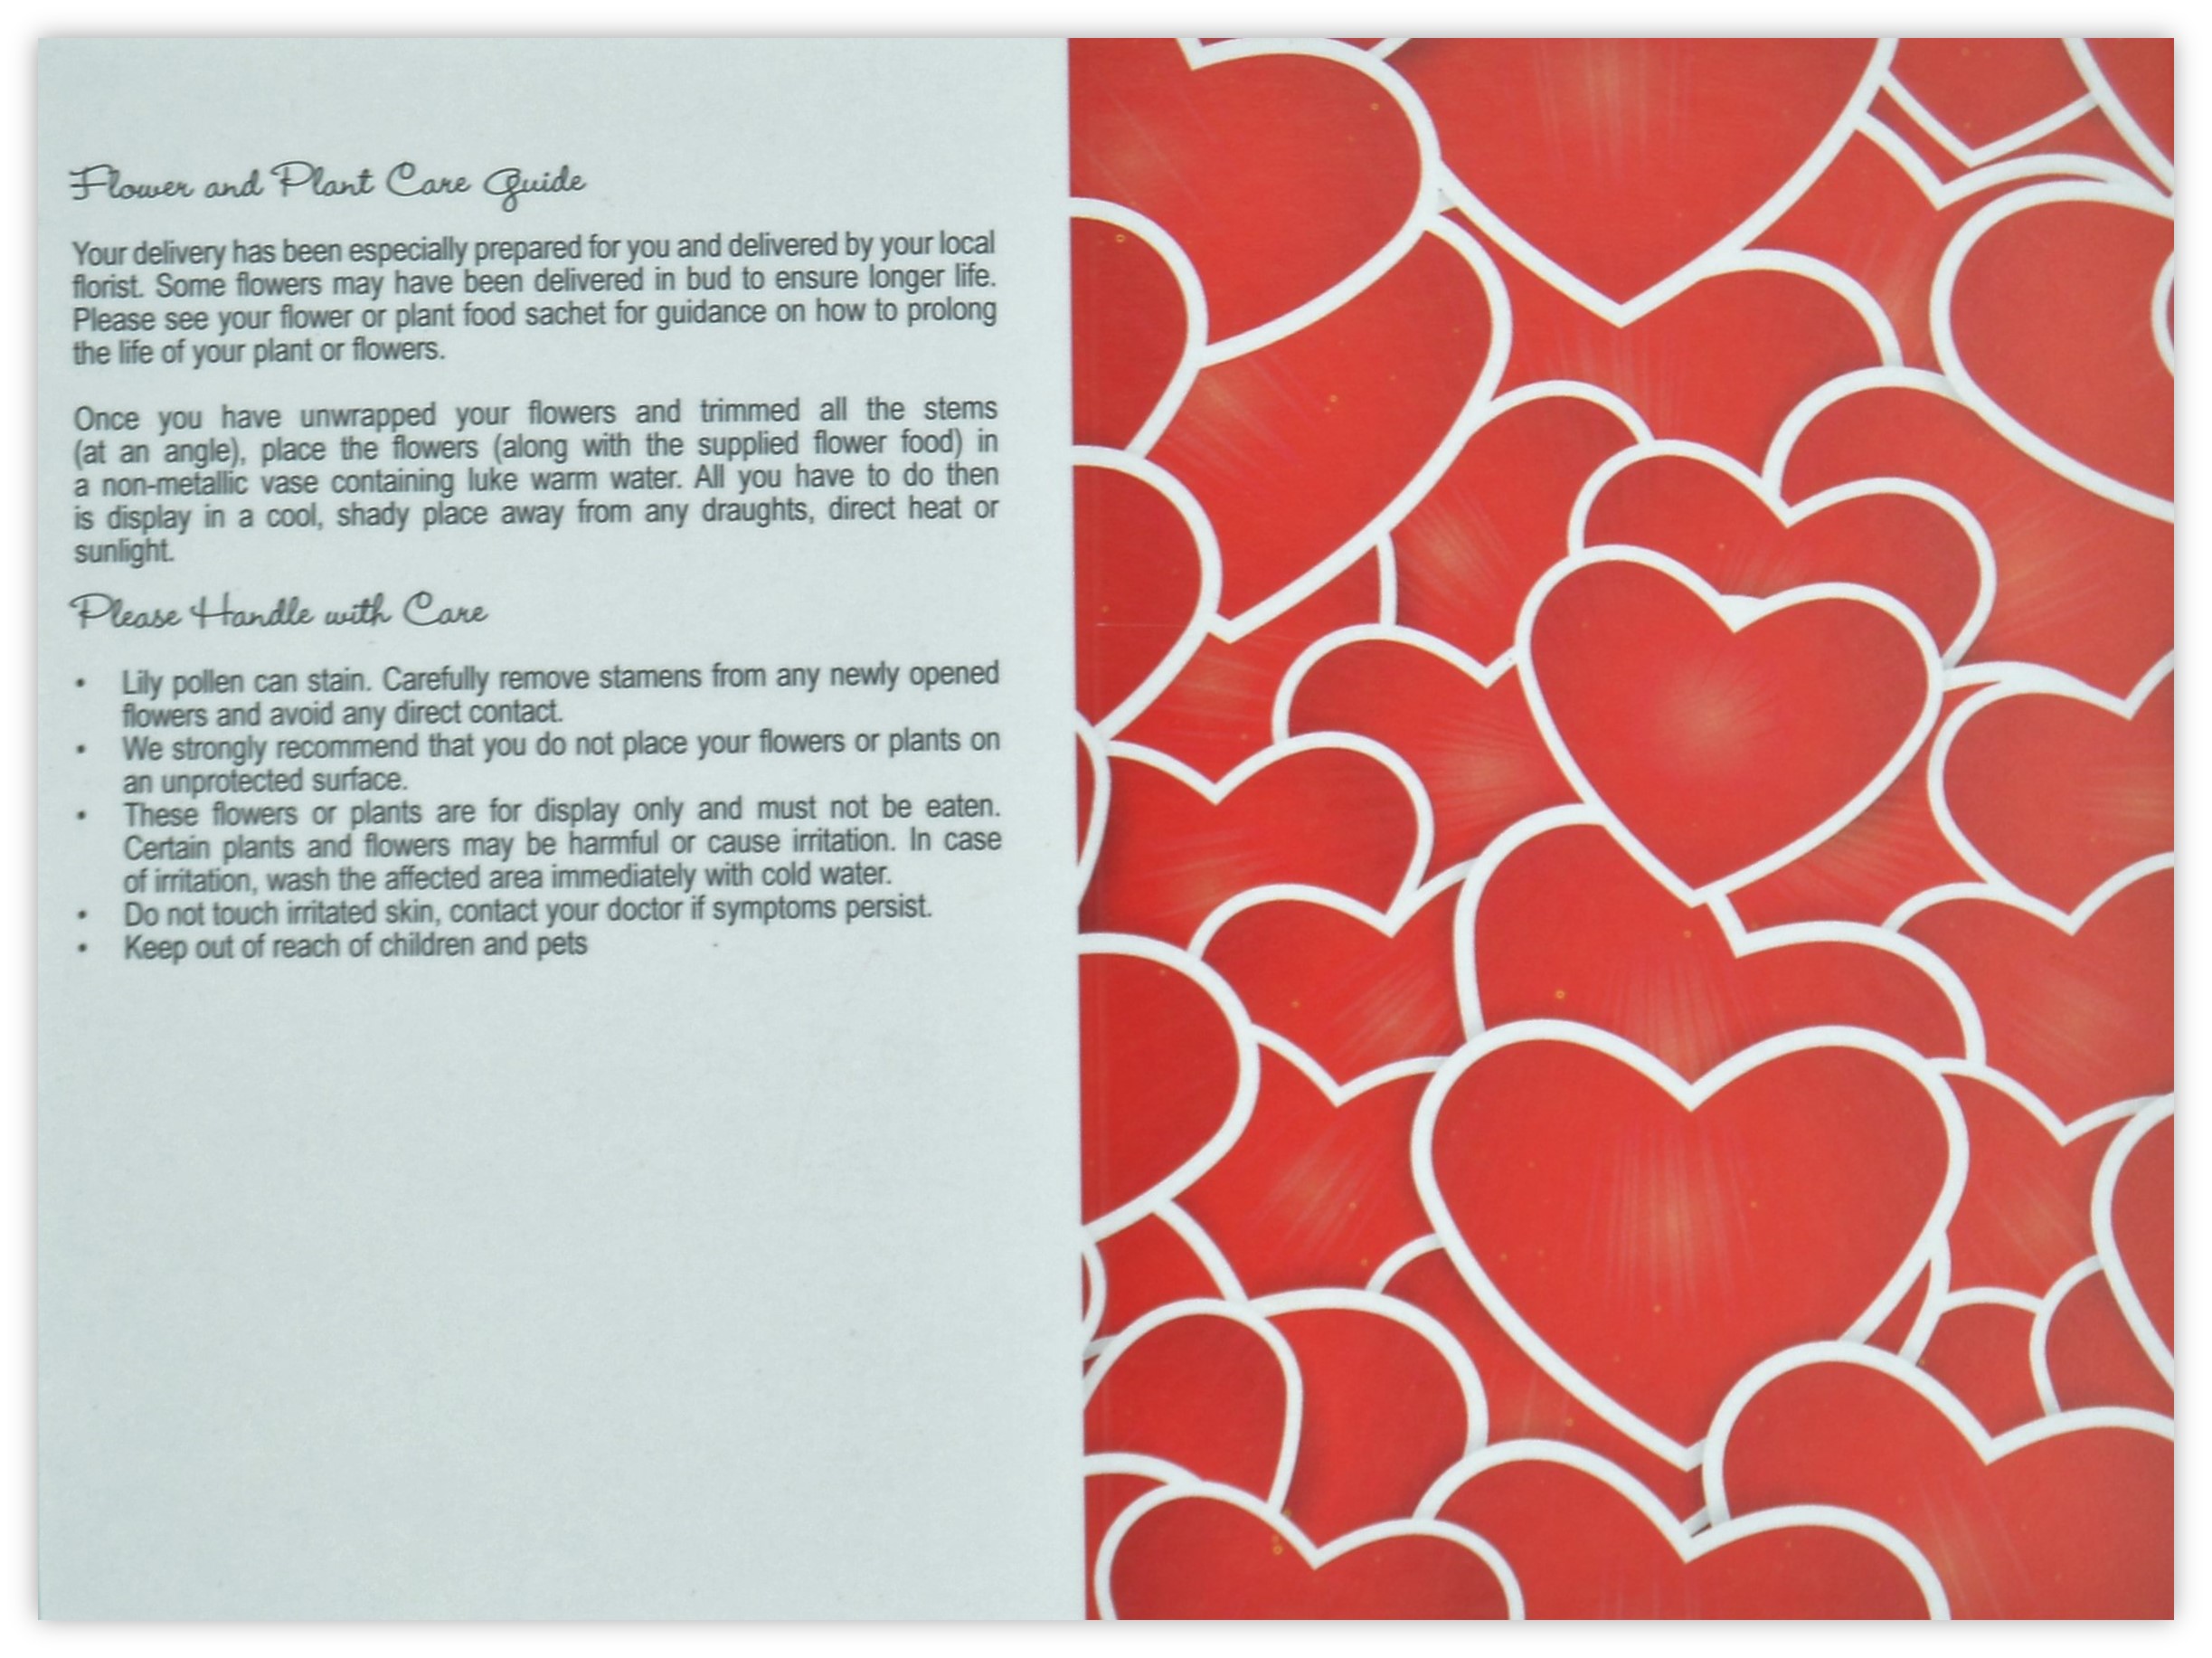 Flower and Plant Care Guide
Your delivery has been especially prepared for you and delivered by your local
florist. Some flowers may have been delivered in bud to ensure longer life.
Please see your flower or plant food sachet for guidance on how to prolong
the life of your plant or flowers.
Once you have unwrapped your flowers and trimmed all the stems
(at an angle), place the flowers (along with the supplied flower food) in
a non-metallic vase containing luke warm water. All you have to do then
is display in a cool, shady place away from any draughts, direct heat or
sunlight.
Please Handle with Care
• Lily pollen can stain. Carefully remove stamens from any newly opened
flowers and avoid any direct contact.
• We strongly recommend that you do not place your flowers or plants on
an unprotected surface.
• These flowers or plants are for display only and must not be eaten.
Certain plants and flowers may be harmful or cause irritation. In case
of irritation, wash the affected area immediately with cold water.
• Do not touch irritated skin, contact your doctor if symptoms persist.
• Keep out of reach of children and pets